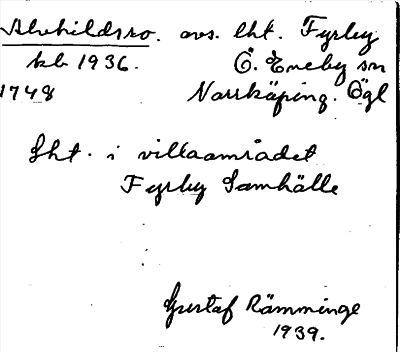 Alvhildsro. avs. lht. Fyrby
kb 1936. Ö. Eneby sn
1748 Norrköping. Ögl
Lht. i villaområdet
Fyrby Samhälle
Gustaf Rämminge
1939.